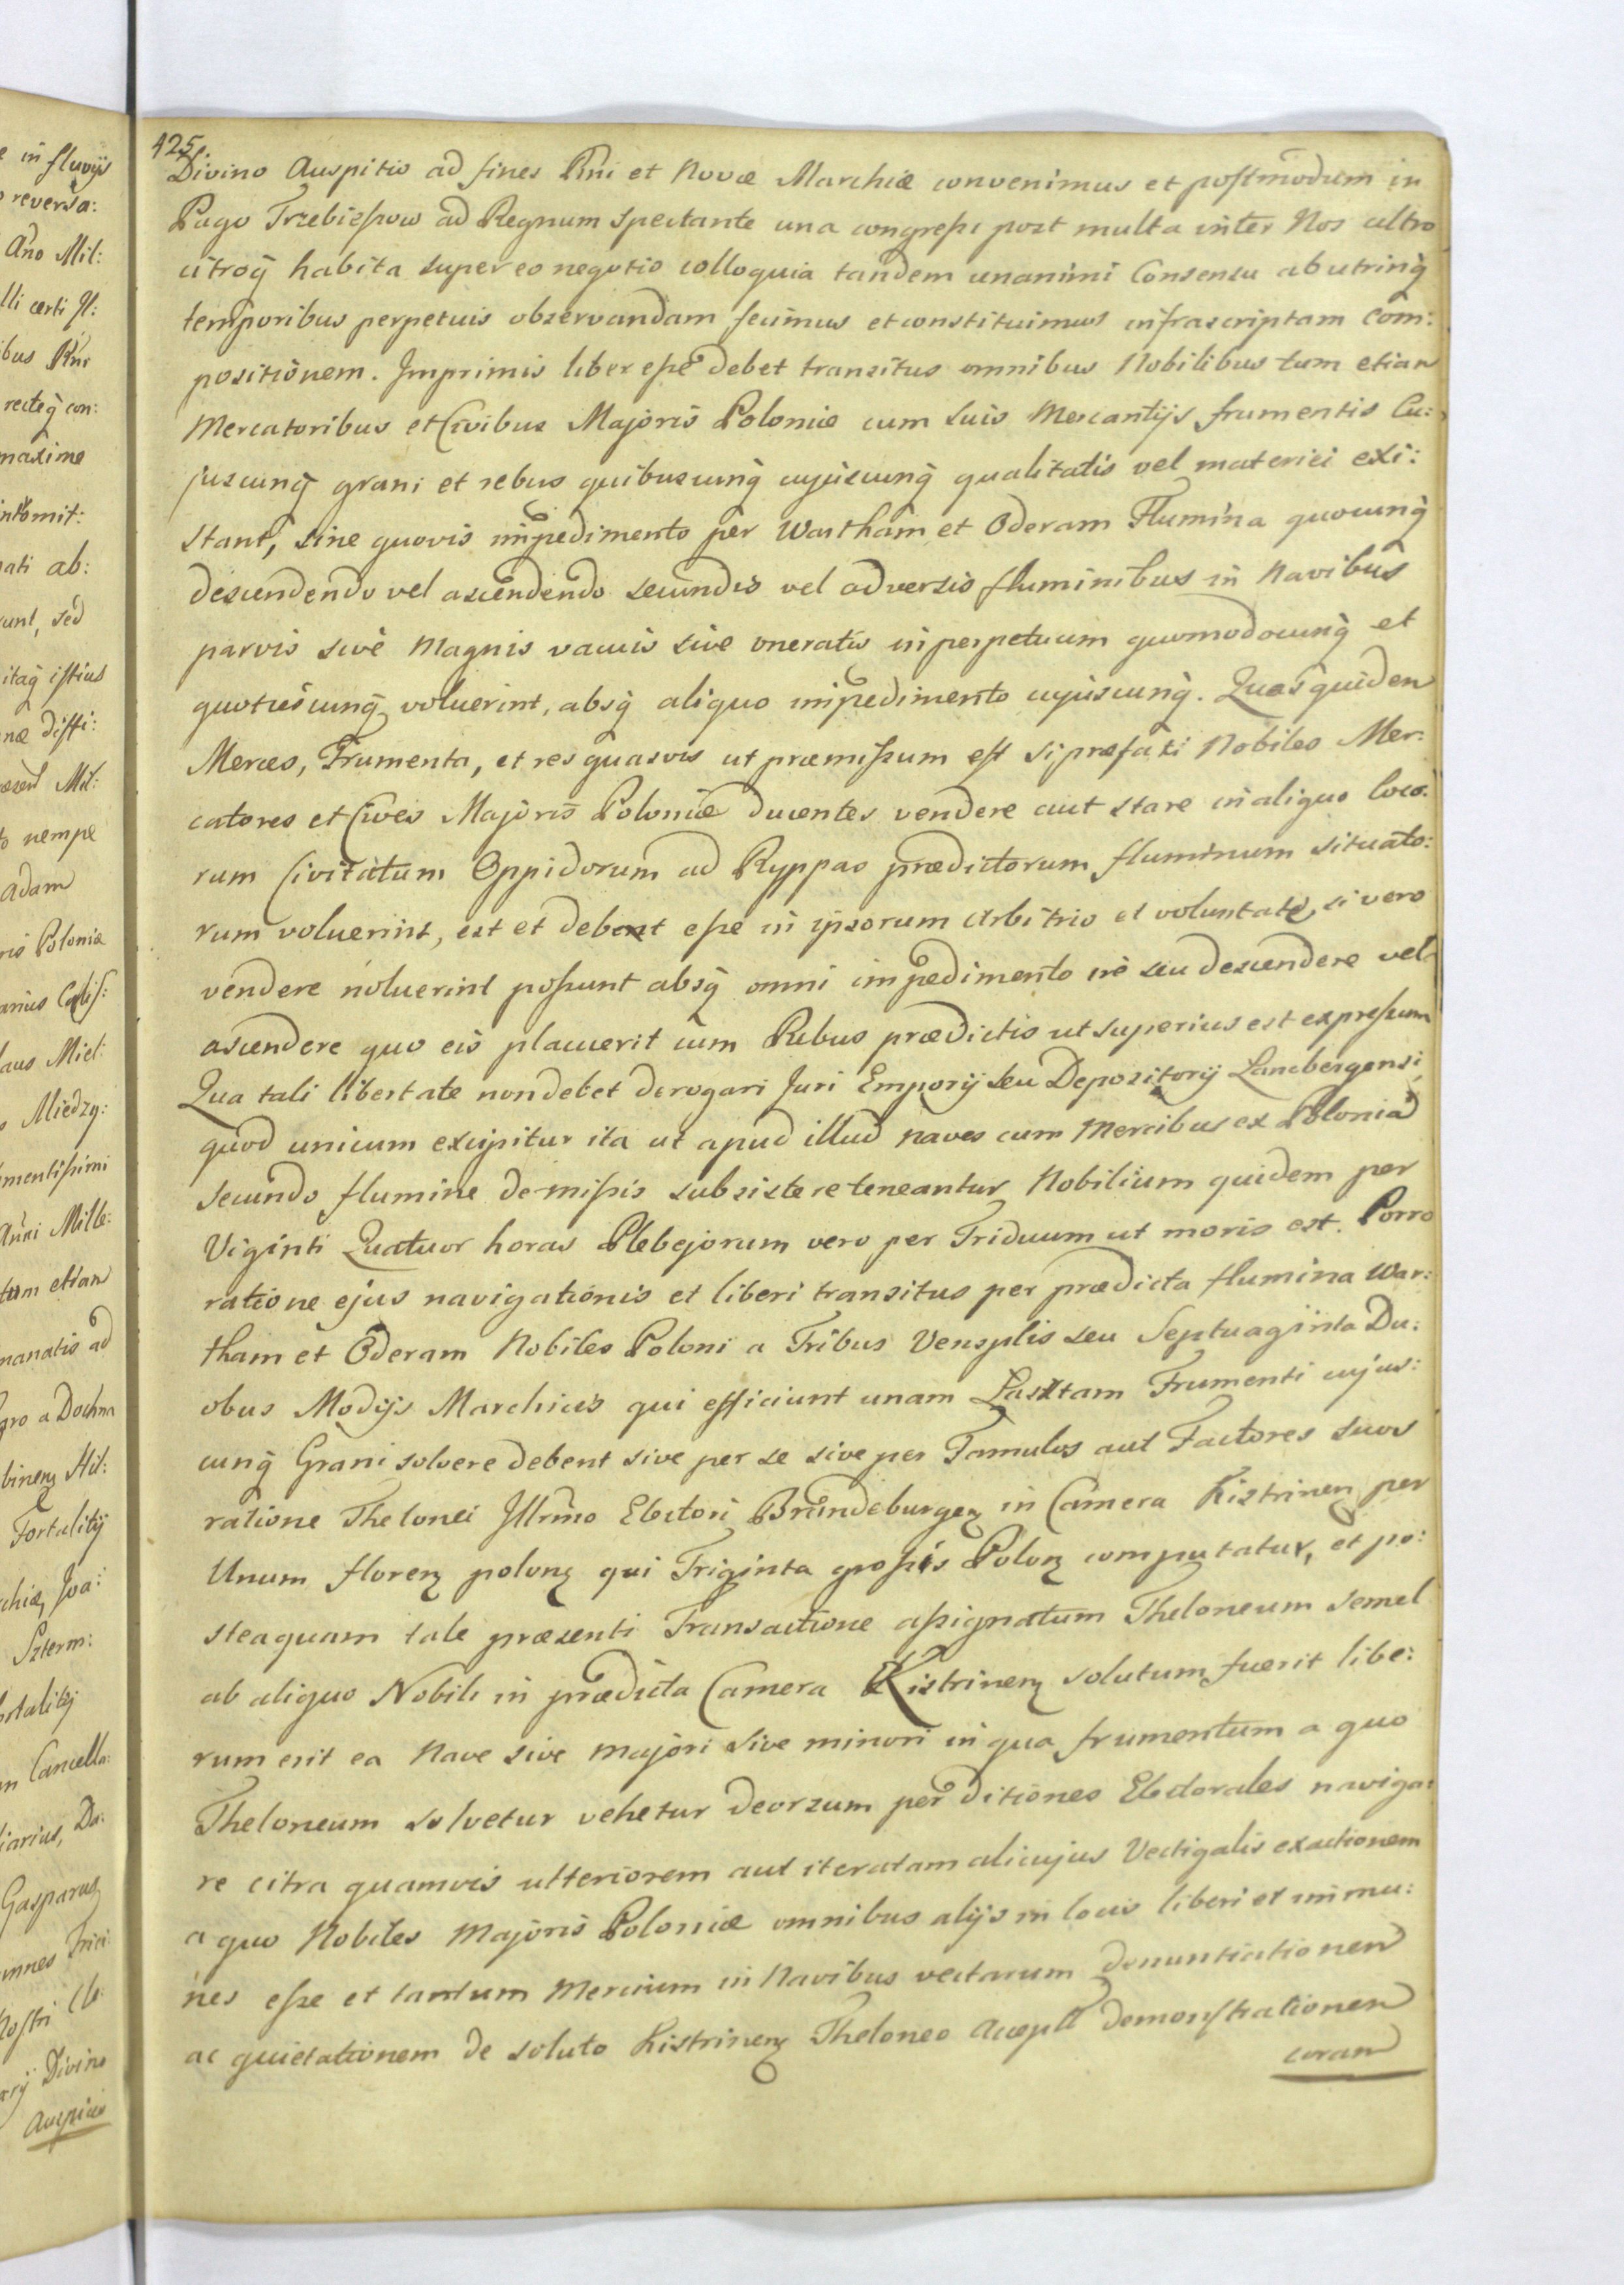 425.
Divino Auspitio ad fines Rni et Novæ Marchiæ convenimus et postmodum in
Pago Trzebieszow ad Regnum spectante una congressi post multa inter Nos ultro
citroq̃ habita super eo negotio colloquia tandem unanimi Consensu ab utrinq̃
temporibus perpetuis observandam fecimus et constituimus infrascriptam Com:
positionem. Imprimis liber esse debet transitus omnibus Nobilibus tum etiam
Mercatoribus et Civibus Majoris Poloniæ cum suis Mercantijs frumentis Cu:
juscunq̃ grani et rebus quibuscunq̃ cujuscunq̃ qualitatis vel materiei exi:
stant, sine quovis impedimento per Wartham et Oderam Flumina quocunq̃
descendendo vel ascendendo secundis vel adversis fluminibus in Navibus
parvis sive Magnis vacuis sive oneratis in perpetuum quomodocunq̃ et
quotiescunq̃ voluerint, absq̃ aliquo impedimento cujuscunq̃. Quas quidem
Merces, Frumenta, et res quasvis ut præmissum est si præfati Nobiles Mer:
catores et Cives Majoris Poloniæ ducentes vendere aut stare in aliquo loco:
rum Civitatum Oppidorum ad Ryppas prædictorum fluminum situato:
rum voluerint, est et debent esse in ipsorum Arbitrio et voluntate, si vero
vendere noluerint possunt absq̃ omni impedimento ire seu descendere vel
ascendere quo eis placuerit cum Rebus prædictis ut superius est expressum
Qua tali libertate non debet derogari Juri Emporij seu Depozitorij Lancbergensi
quod unicum excipitur ita ut apud illud naves cum Mercibus ex Polonia
secundo flumine demissis subsistere teneantur Nobilium quidem per
Viginti Quatuor horas Plebejorum vero per Triduum ut moris est. Porro
ratione ejus navigationis et liberi transitus per prædicta flumina War:
tham et Oderam Nobiles Poloni a Tribus Vensplis seu Septuaginta Du:
obus Modijs Marchicis qui efficiunt unam Lasztam Frumenti cujus:
cunq̃ Grani solvere debent sive per se sive per Famulos aut Factores suos
ratione Thelonei Illrmo Electori Brandeburgen in Camera Kistrinen per
Unum floren polon qui Triginta grossis Polon computatur, et po:
steaquam tale præsenti Transactione assignatum Theloneum semel
ab aliquo Nobili in prædicta Camera Kistrinen solutum fuerit libe:
rum erit ea Nave sive majori sive minori in qua frumentum a quo
Theloneum solvetur vehetur deorsum per ditiones Electorales naviga:
re citra quamvis ulteriorem aut iteratam alicujus Vectigalis exactionem
a quo Nobiles Majoris Poloniæ omnibus alijs in locis liberi et immu:
nes esse et tantum Mercium in Navibus vectarum denuntiationem
ac quietationem de soluto Kistrinen Theloneo Accepta demonstrationem
coram
e in fluvijs
o reversa:
Ano Mil:
lli certi Il:
ibus Rni
recteq̃ con:
maxime
intomit:
nati ab:
unt, sed
itaq̃ istius
næ diffi:
Mil:
o nempe
Adam
ris Poloniæ
anius Calis:
laus Miel:
o Miedzy:
mentissimi
Anni Mille:
tum etiam
manatis ad
a Dochna
binen Stil:
Fortalitij
chiæ, Joa:
Szterm:
ortalitij
m Cancella:
liarius, Da:
Gasparus
omnes
Nostri Cle:
Divino
Auspicio